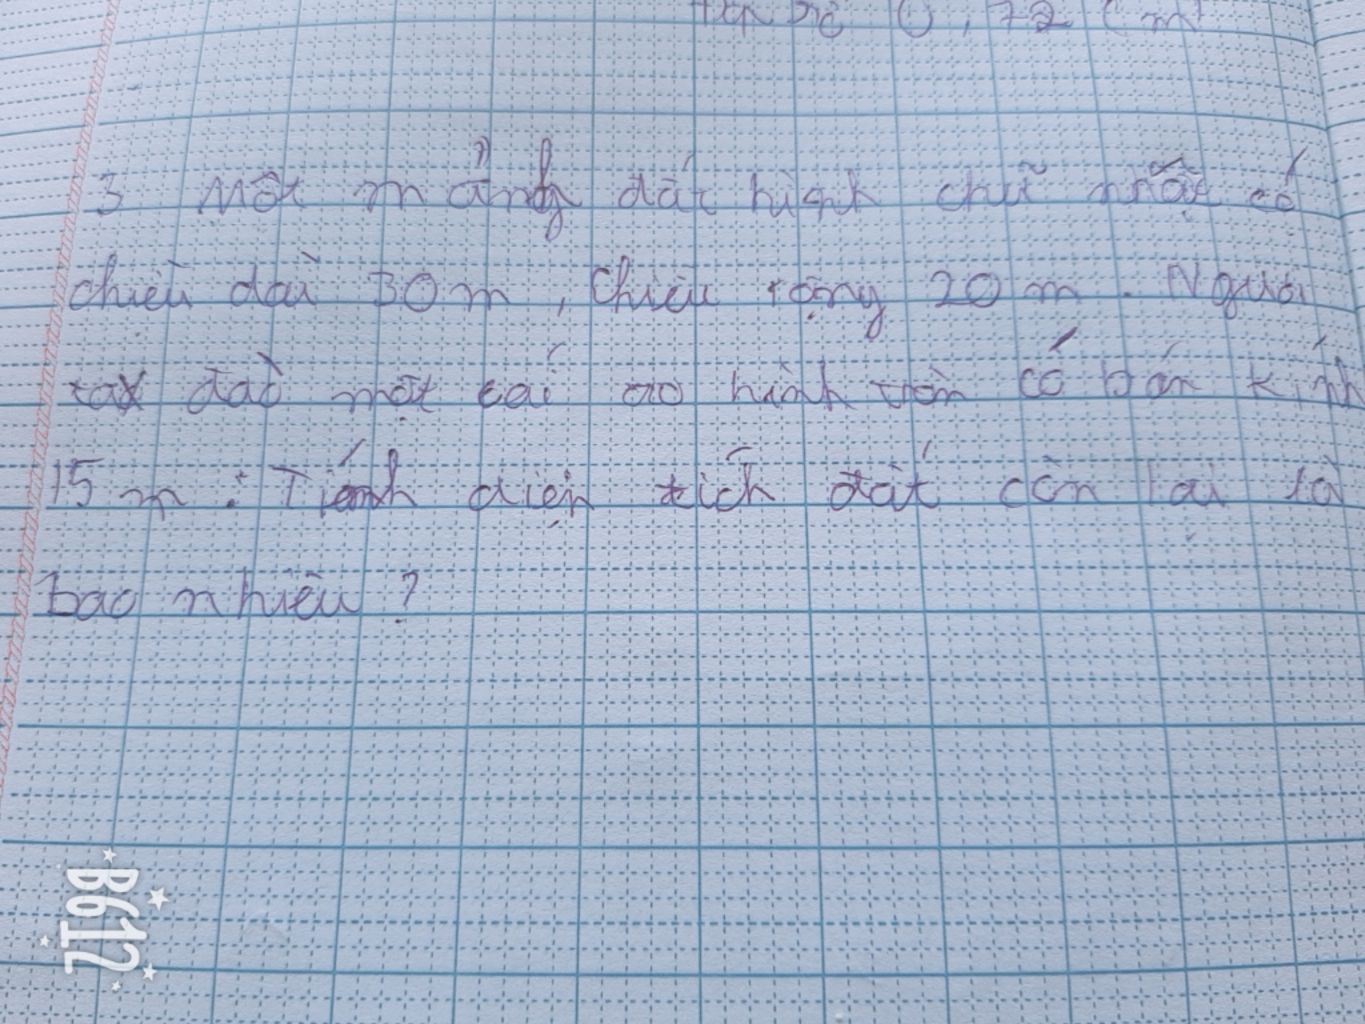 3 Một mảnh đất hình chữ nhật có
chiều dài 30 m, chiều rộng 20 m. Người
ta đào một cái ao hình tròn có bán kính
15 m. Tính diện tích đất còn lại là
bao nhiêu?
B612